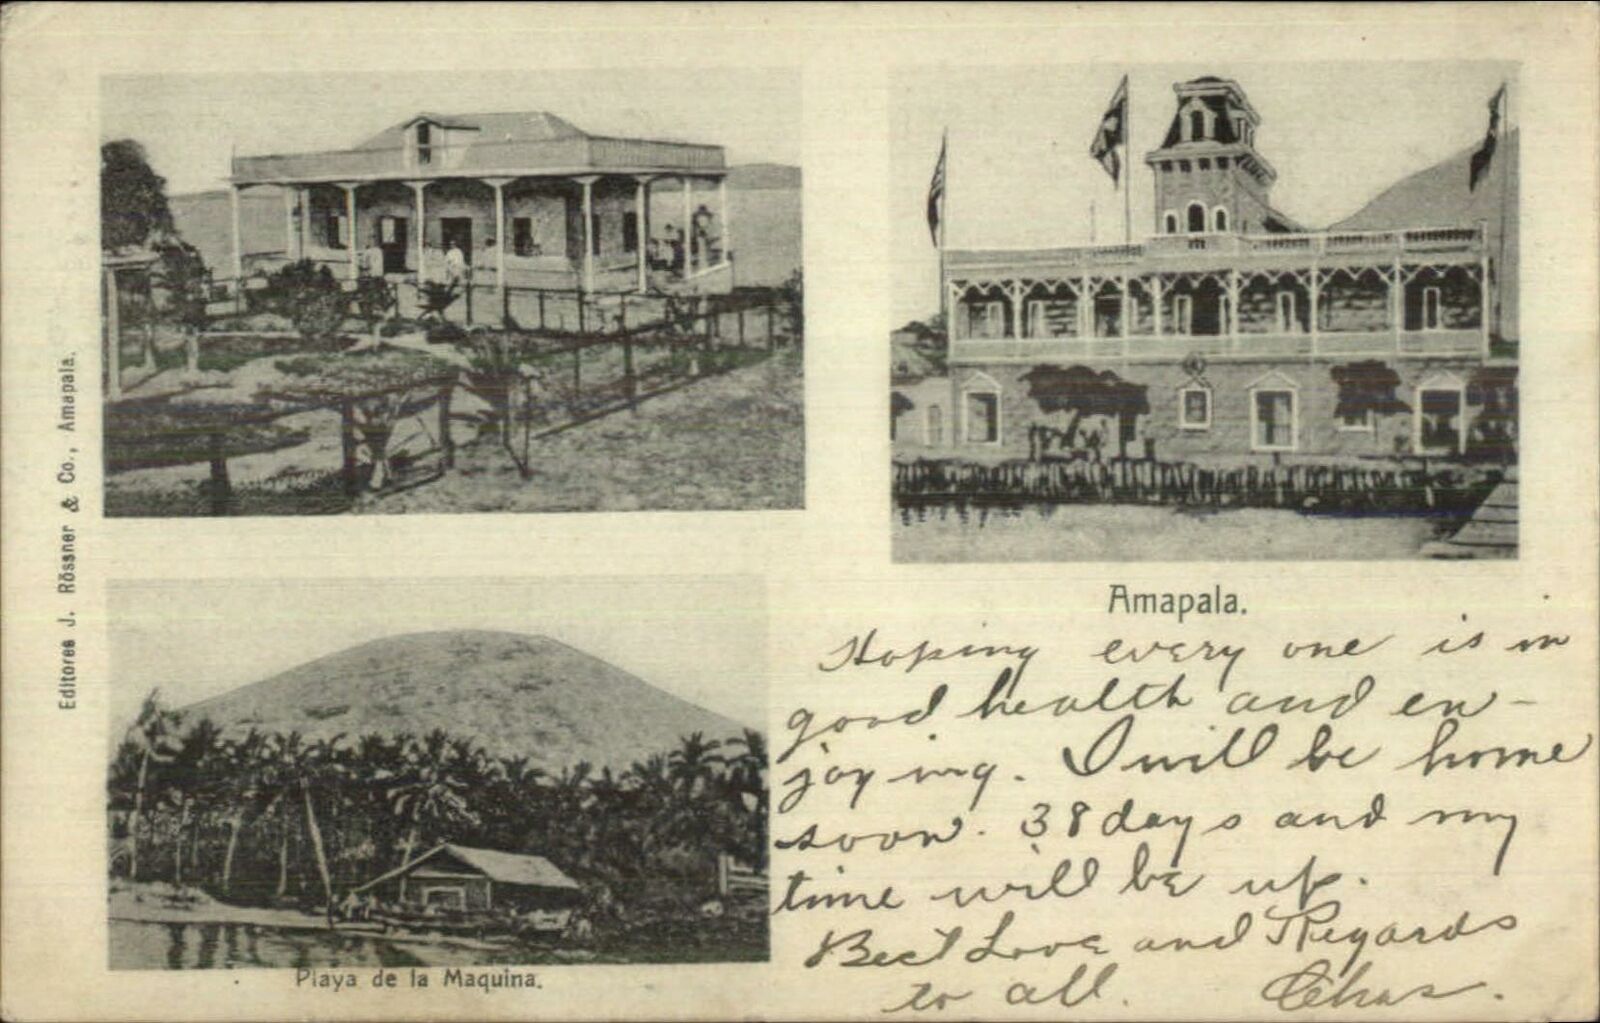 Editores J. Rössner & Co., Amapala.
Amapala.
Playa de la Maquina.
Hoping every one is in
good health and en-
joying. I will be home
soon. 38 days and my
time will be up.
Best Love and Regards
to all. Chas.